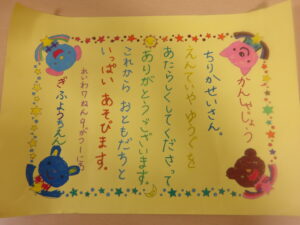 かんしゃじょう
ちりかせいさん。
えんていや ゆうぐを
あたらしくしてくださって
ありがとうございます。
これから おともだちと
いっぱい あそびます。
れいわ7ねん9がつ
ぎふようちえん